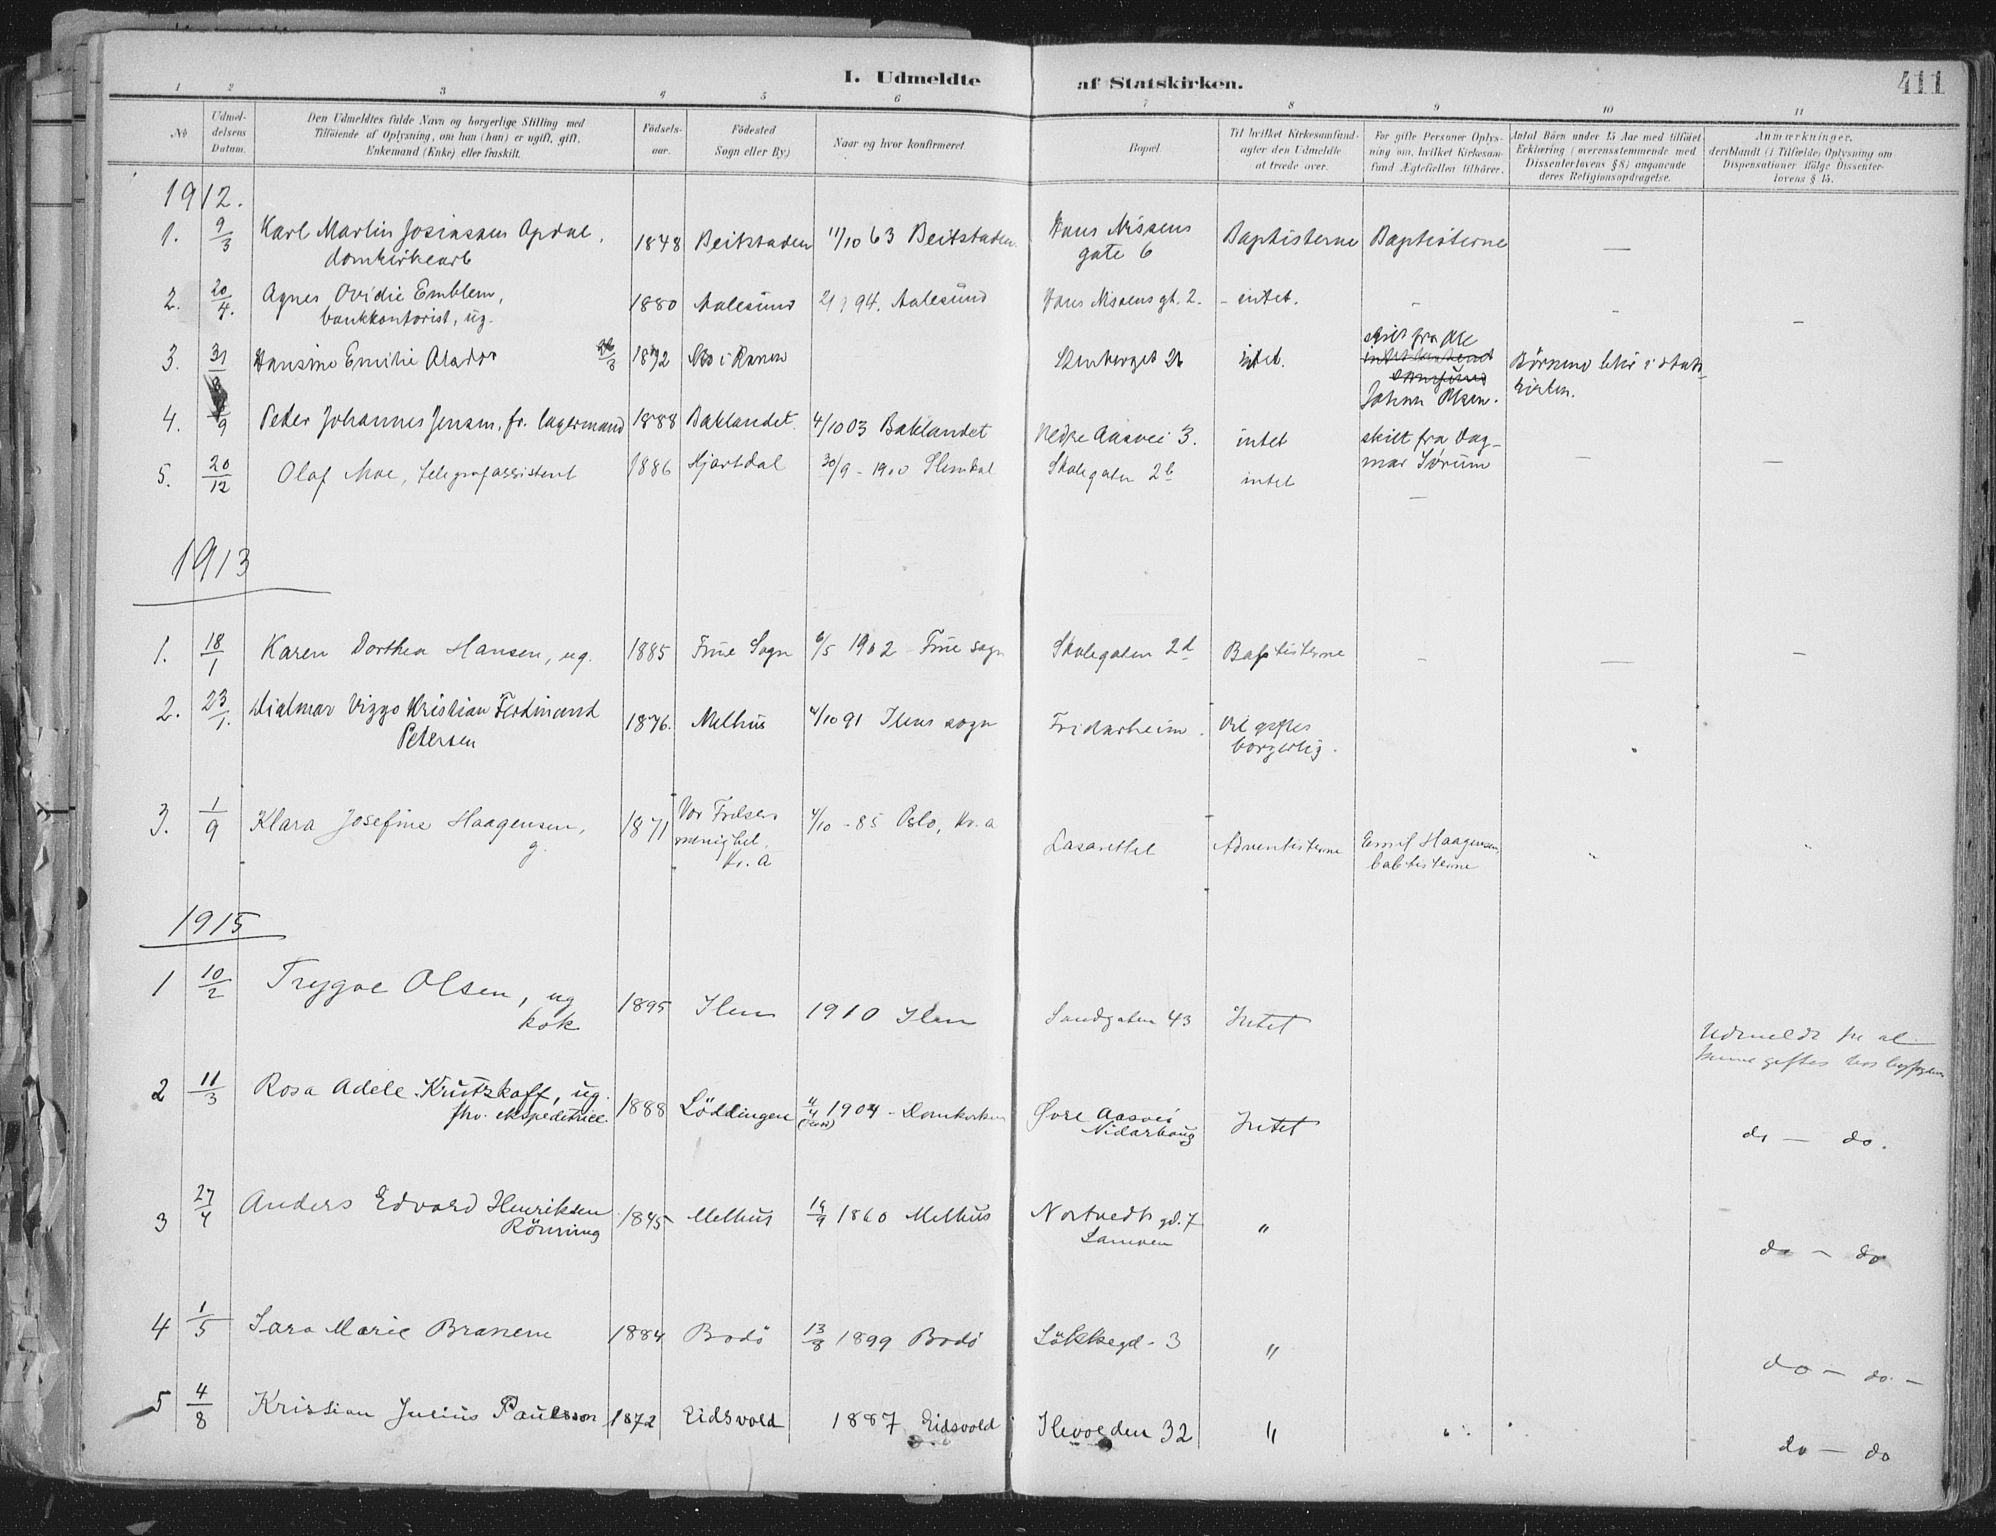 I. Udmeldte af Statskirken.
411
1 2 3 4 5 6 7 8 9 10 11
No
Udmeldelsens Datum.
Den Udmeldtes fulde Navn og borgerlige Stilling med
Tilføiende af Oplysning, om han (hun) er ugift, gift,
Enkemand (Enke) eller fraskilt.
Fødselsaar.
Fødested
Sogn eller By)
Naar og hvor konfirmeret.
Bopæl.
Til hvilket Kirkesamfund
agter den Udmeldte
at træde over.
For gifte Personer Oplysning om, hvilket Kirkesamfund Ægtefællen tilhører.
Antal Børn under 15 Aar med tilføiet
Erklæring (overensstemmende med
Dissenterlovens § 8) angaaende
deres Religionsopdragelse.
Anmærkninger,
deriblandt (i Tilfælde) Oplysning om
Dispensationer ifølge Dissenterlovens § 15.
1912.
1. 9/3 Karl Martin Josiassen Opdal, 1848 Beitstaden 11/10 63 Beitstaden Hans Nissens Baptisterne Baptisterne —
domkirkearb gate 6
2. 20/4. Agnes Ovidie Emblem, 1880 Aalesund 94. Aalesund Hans Nissens gt. 2. - intet. - - —
bankkontorist, ug.
3. 31 Hansine Emilie 1892 i Ranen Stenberget 26 intet. skilt fra Ole
Johan Olsen. Børnene i stats-
kirken.
4. /9 Peter Johannes Jensen, fr. lagermand 1888 Baklandet. 4/10 03 Baklandet Nedre Aasvei 3. intet skilt fra Dag- — —
mar Sørum
5. 20/12 Olaf Moe, telegrafassistent 1886 Hjartdal 30/9 - 1900 Skolegaten 2b intet —
1913
1. 18/1 Karen Dorthea Hansen, ug. 1885 Frue Sogn 6/5 1902 - Frue sogn Skolegaten 2d Baptisterne - — —
2. 23/1. Hialmar Viggo Kristian Ferdinand 1876. Melhus 4/10 91 Ilens sogn Fridarheim. Vil giftes
Petersen borgerlig.
3. 1/9 Klara Josefine Haagensen, 1871 Vor Frelsers 4/10 - 85 Oslo, Kr.a Lasarettet Adventisterne Emil Haagensen,
g. menighet, babtisterne
Kr.a
1915
1 10/2 Trygve Olsen, ug 1895 Ilen 1910 Ilen Sandgaten 43 Intet
kok
Udmeldt for at
kunne giftes hos byfogden
2 11/3 Rosa Adele Krutzkoff, ug. 1888 Lödingen 1904 - Domkirken Øvre Aasvei Intet do — do.
fhv. ekspeditrice. Nidarhaug
3 27/4 Anders Edvard Henriksen 1845 Melhus 1860 Melhus Nortvedts gd. 7 " do — do
Rönning Lamoen
4 1/5 Sara Marie 1884 Bodö 13/8 1899 Bodö Lökkegd - 3 " do — do. —
5 4/8 Kristian Julius Paulsson 1872 Eidsvold 1887 Eidsvold Ilevolden 32 " do — do